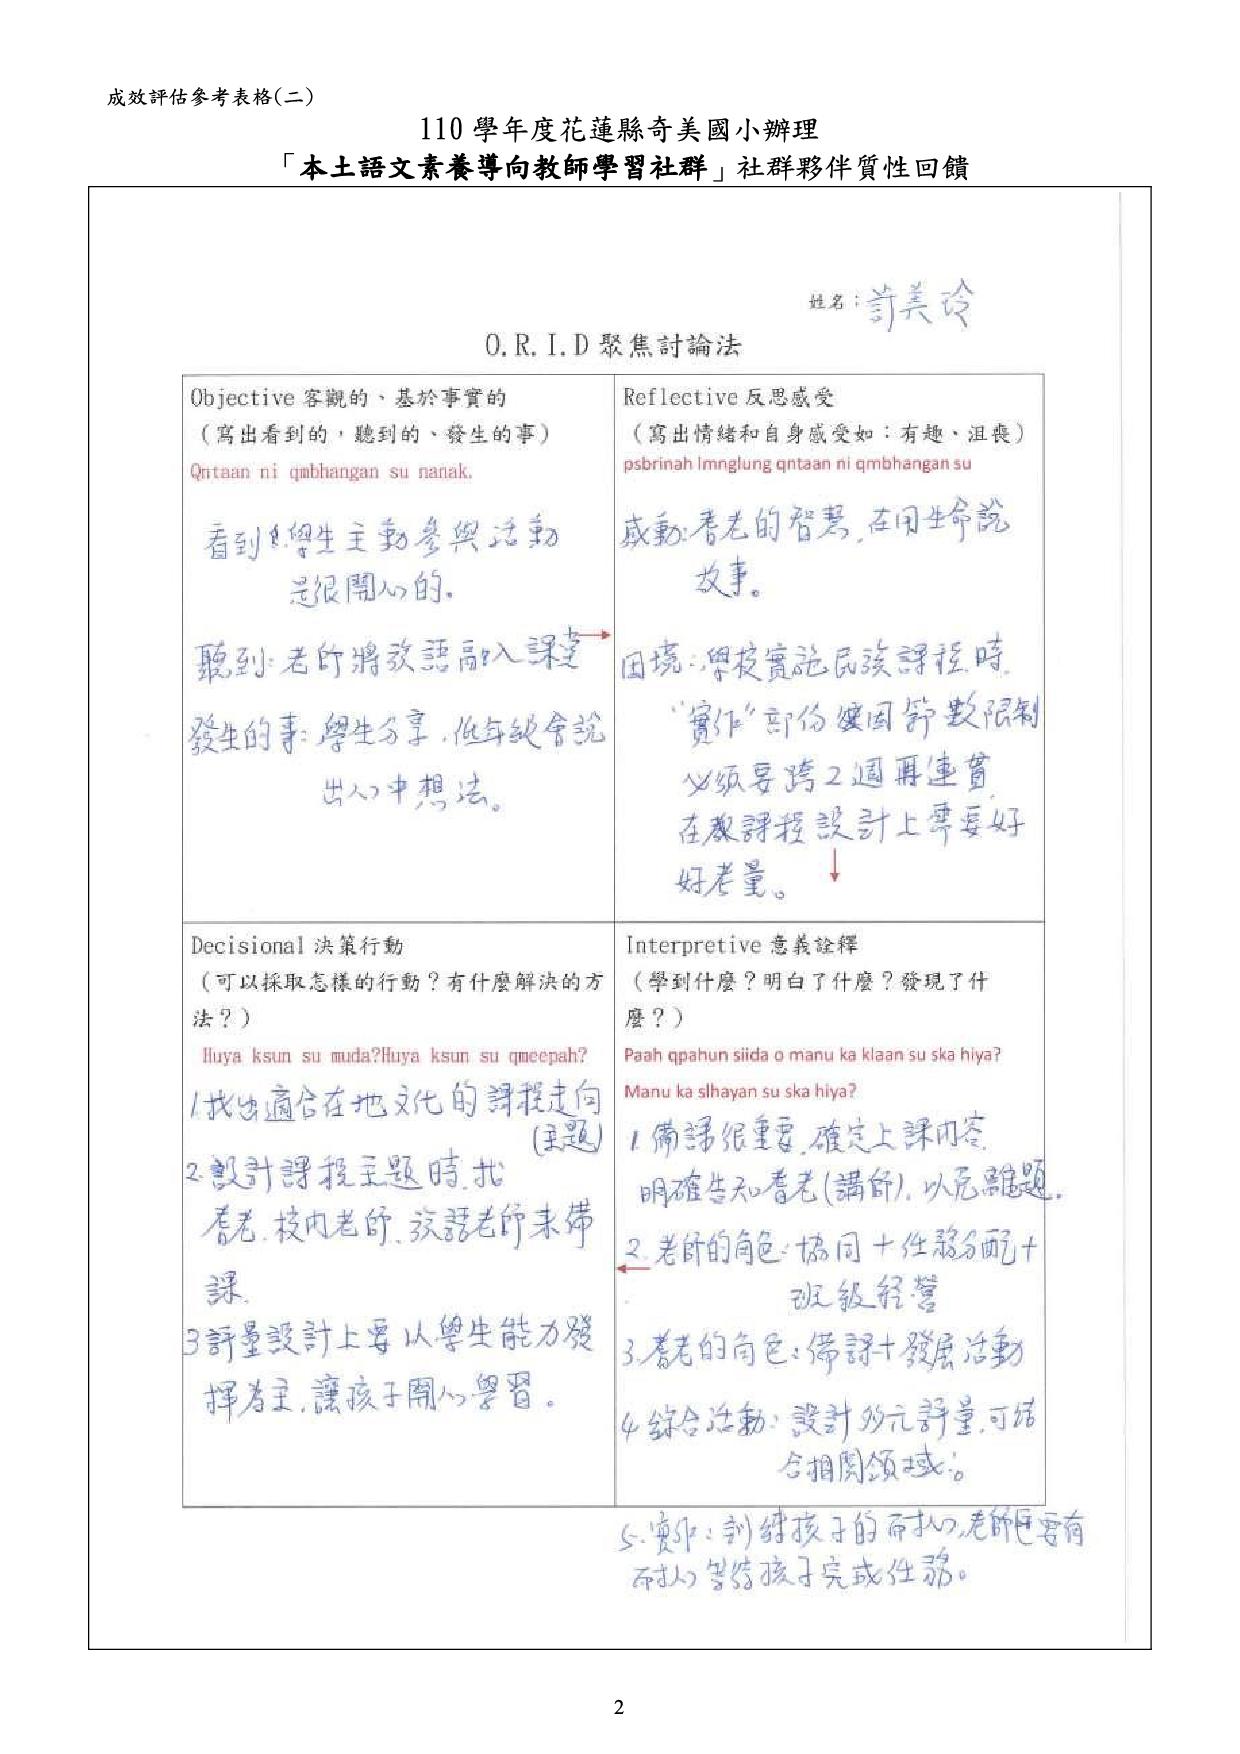 成效評估參考表格(二)
110 學年度花蓮縣奇美國小辦理
「本土語文素養導向教師學習社群」社群夥伴質性回饋
姓名：美玲
O.R.I.D 聚焦討論法
Objective 客觀的、基於事實的
（寫出看到的，聽到的、發生的事）
Qntaan ni qmbhangan su nanak.
看到:學生主動參與活動
是很開心的.
聽到:老師將族語融入課堂
發生的事:學生分享.低年級會說
出心中想法。
Reflective 反思感受
（寫出情緒和自身感受如：有趣、沮喪）
psbrinah lmnglung qntaan ni qmbhangan su
感動:耆老的智慧.在用生命說
故事。
困境:學校實施民族課程時.
"實作"部份 因節數限制
必須要跨2週再連貫.
在 課程設計上需要好
好考量。
Decisional 決策行動
（可以採取怎樣的行動？有什麼解決的方
法？）
Huya ksun su muda?Huya ksun su qmeepah?
1.找出適合在地文化的課程走向
(主題)
2.設計課程主題時.找
耆老.校內老師.族語老師來備
課.
3評量設計上要以學生能力發
揮為主.讓孩子開心學習。
Interpretive 意義詮釋
（學到什麼？明白了什麼？發現了什
麼？）
Paah qpahun siida o manu ka klaan su ska hiya?
Manu ka slhayan su ska hiya?
1.備課很重要.確定上課內容.
明確告知耆老(講師).以免離題.
2.老師的角色:協同+任務分配+
班級經營
3.耆老的角色:備課+發展活動
4綜合活動:設計多元評量.可結
合相關領域。
5.實作:訓練孩子的耐心,老師 要有
耐心等待孩子完成任務。
2